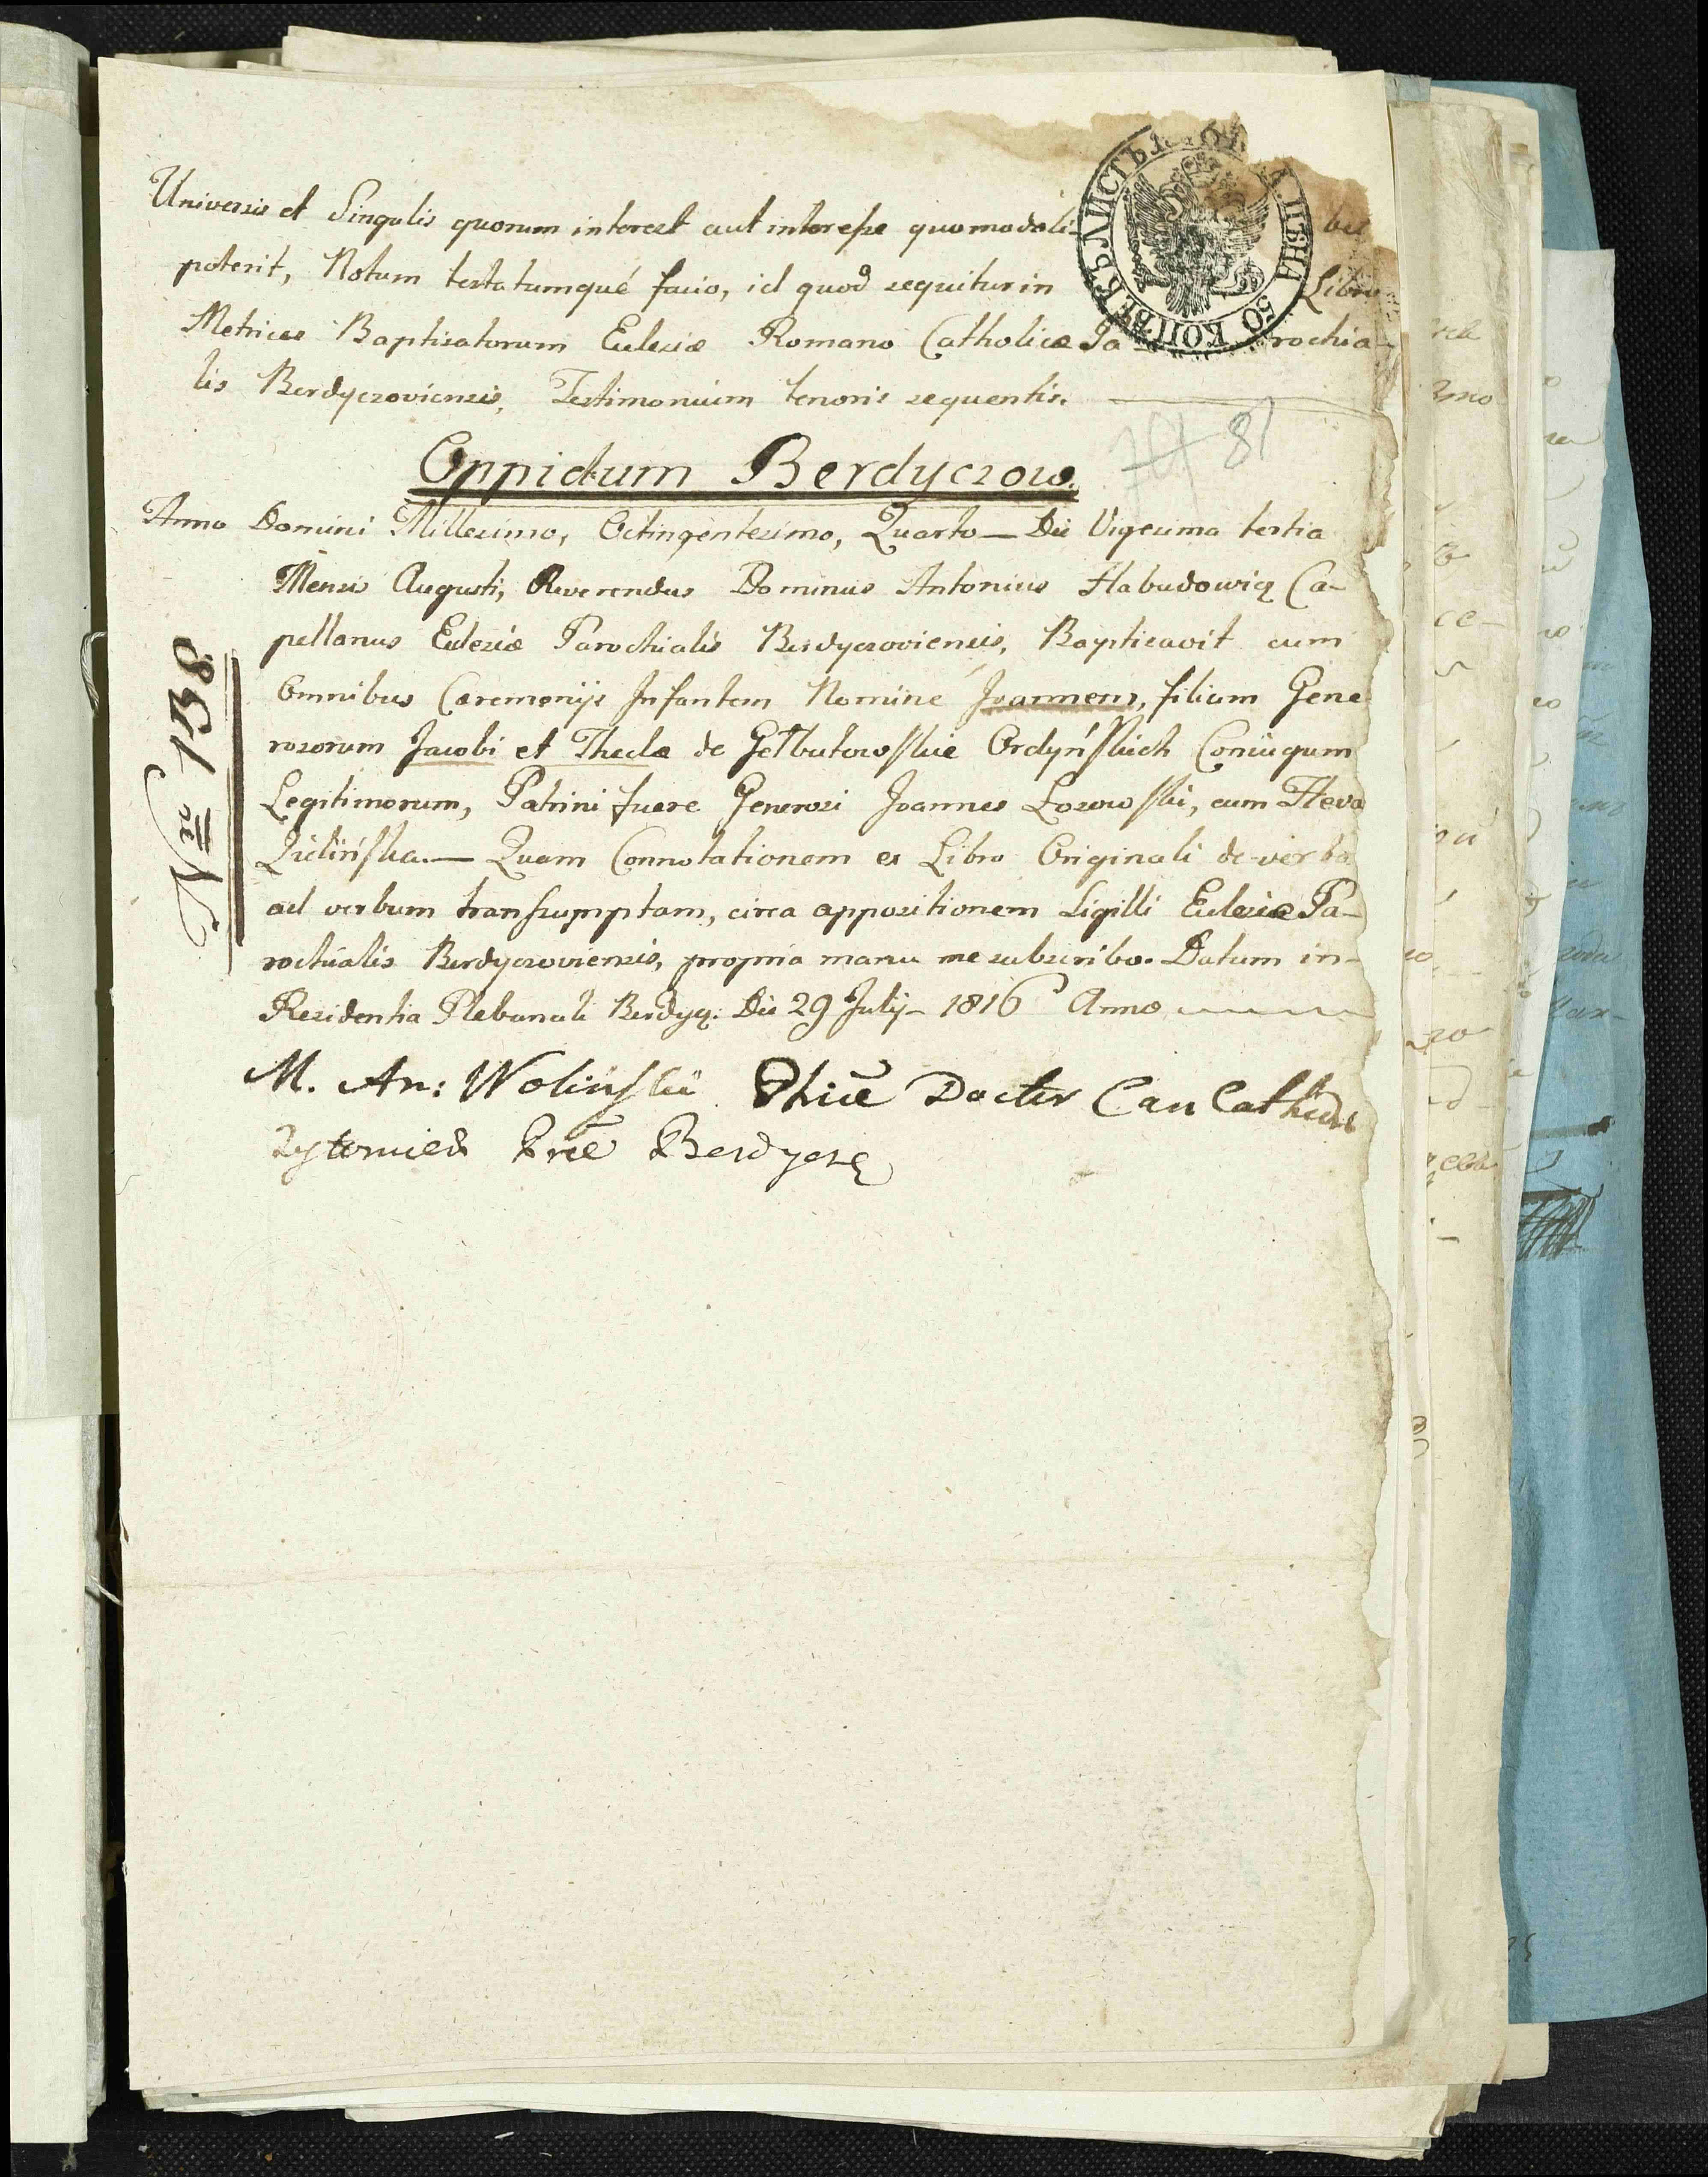 Universis et Singulis quorum interest aut interesse quomodoli-
bet
poterit, Notum testatumqué facio, id quod sequitur in Libro
Metrices Baptisatorum Eclesiæ Romano Catholicæ Pa-rochia-
lis Berdyczoviensis, Testimonium tenoris sequentis.
ЛИСТЪ ЦѢНА 50 КОПѢЕКЪ
81
Oppidum Berdyczow.
Anno Domini Millesimo, Octingentesimo, Quarto — Die Vigesima tertia
Mensis Augusti, Reverendus Dominus Antonius Habudowicz Ca-
pellanus Eclesiæ Parochialis Berdyczoviensis, Baptisavit cum
Omnibus Cæremonijs Infantem Nomine Joannem, filium Gene
rosorum Jacobi et Theclæ de Gełbutowskie Ordyńskich Coniugum
Legitimorum, Patrini fuere Generosi Joannes Łozowski, cum Heva
Zielińska. — Quam Connotationem ex Libro Originali de verbo
ad verbum transsumptam, circa appositionem Sigilli Eclesiæ Pa-
rochialis Berdyczoviensis, propria manu me subscribo. Datum in-
Residentia Plebanali Berdycz: Die 29 Julij - 1816 Anno
Nro 138
M. An: Woliński Phiæ Doctor Can Cathedr
Zytomier Præ Berdycz